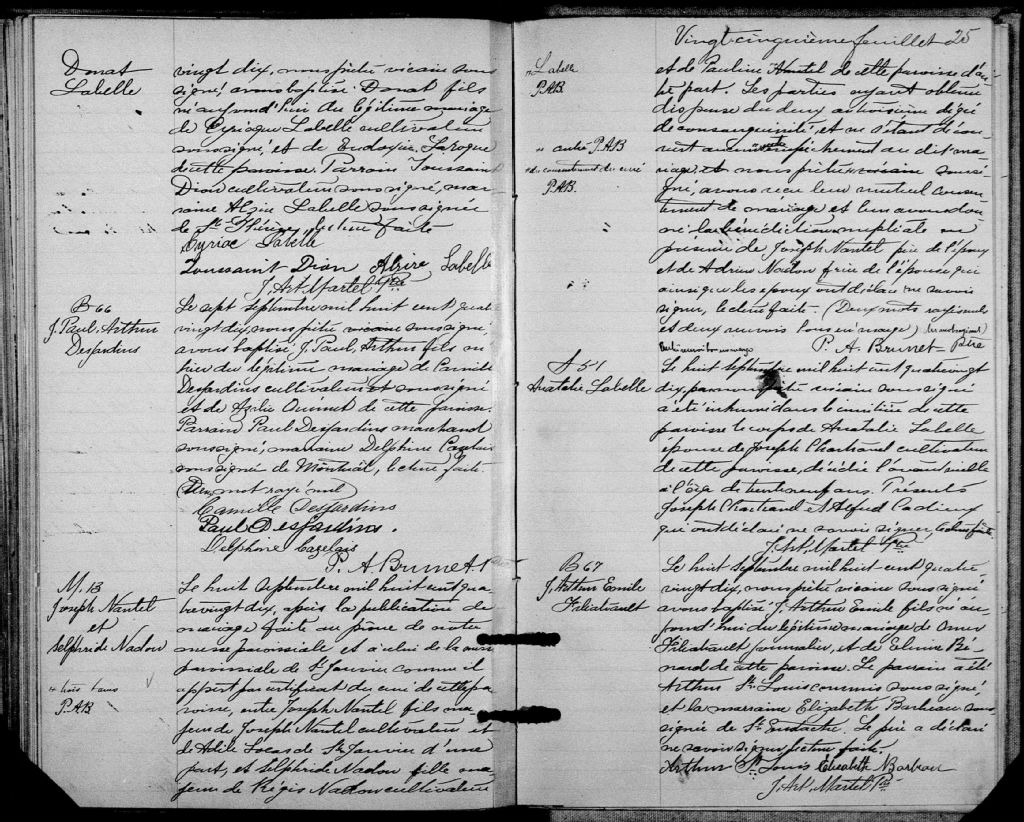 Donat
Labelle
vingt dix, nous prêtre vicaire sous
signé, avons baptisé Donat fils
né aujourd'hui du légitime mariage
de Cyriaque Labelle cultivateur
soussigné, et de Eudoxie Laroque
de cette paroisse. Parrain Toussaint
Dion cultivateur soussigné, mar-
raine Alzire Labelle soussignée
de Ste Thérèse, lecture faite
Cyriac Labelle
Toussaint Dion Alzire Labelle
J. Art. Martel Ptre
B 66
J. Paul, Arthur
Desjardins
Le sept septembre mil huit cent quatre
vingt dix, nous prêtre vicaire soussigné,
avons baptisé, J. Paul, Arthur fils né
hier du légitime mariage de Camille
Desjardins cultivateur et soussigné
et de Azélie Ouimet de cette paroisse.
Parrain Paul Desjardins marchand
soussigné, marraine Delphine Cazelais
soussignée de Montréal, lecture faite
Deux mot rayé nul
Camille Desjardins
Paul Desjardins.
Delphine Cazelais
P. A. Brunet
M. 13
Joseph Nantel
et
Selphride Nadon
trois bans
P.A.B
Le huit septembre mil huit cent qua-
trevingt dix, après la publication de
mariage faite au prône de notre
messe paroissiale et à celui de la messe
paroissiale de St Janvier comme il
appert par certificat du curé de cette pa-
roisse, entre Joseph Nantel fils ma-
jeur de Joseph Nantel cultivateur et
de Adèle Locas de St Janvier d'une
part, et Selphride Nadon fille ma-
jeure de Régis Nadon cultivateur
Vingt cinquième feuillet 25
Labelle
P.A.B
curé P.A.B
du consentement du curé
P.A.B.
et de Pauline Nantel de cette paroisse d'au-
tre part. Les parties ayant obtenu
dispense du deux au troisième degré
de consanguinité, et ne s'étant décou-
vert aucun empêchement au dit ma-
riage, et nous prêtre vicaire soussi-
gné, avons reçu leur mutuel consen-
tement de mariage et leur avons don-
né la bénédiction nuptiale en
présence de Joseph Nantel père de l'époux
et de Adrien Nadon frère de l'épouse qui
ainsi que les époux ont déclaré ne savoir
signer, lecture faite. (Deux mots rayés nuls
et deux renvois bons en marge)
P. A. Brunet Ptre
S 51
Anatalie Labelle
Le huit septembre mil huit cent quatrevingt
dix, par nous prêtre vicaire soussigné
a été inhumé dans le cimitière de cette
paroisse le corps de Anatalie Labelle
épouse de Joseph Chartrand cultivateur
de cette paroisse, décédée l'avant veille
à l'âge de trente neuf ans. Présents
Joseph Chartrand et Alfred Cadieux
qui ont déclaré ne savoir signer, lecture faite.
J. Art. Martel Ptre
B 67
J. Arthur Emile
Filiatrault
Le huit septembre mil huit cent quatre
vingt dix, nous prêtre vicaire soussigné
avons baptisé J. Arthur Emile fils né au-
jourd'hui du légitime mariage de Omer
Filiatrault journalier, et de Elmire Bé-
nard de cette paroisse. Le parrain a été
Arthur St Louis commis soussigné,
et la marraine Elizabeth Barbeau sous-
signée de St Eustache. Le père a déclaré
ne savoir signer lecture faite.
Arthur St Louis Elisabeth Barbeau
J. Art. Martel Ptre